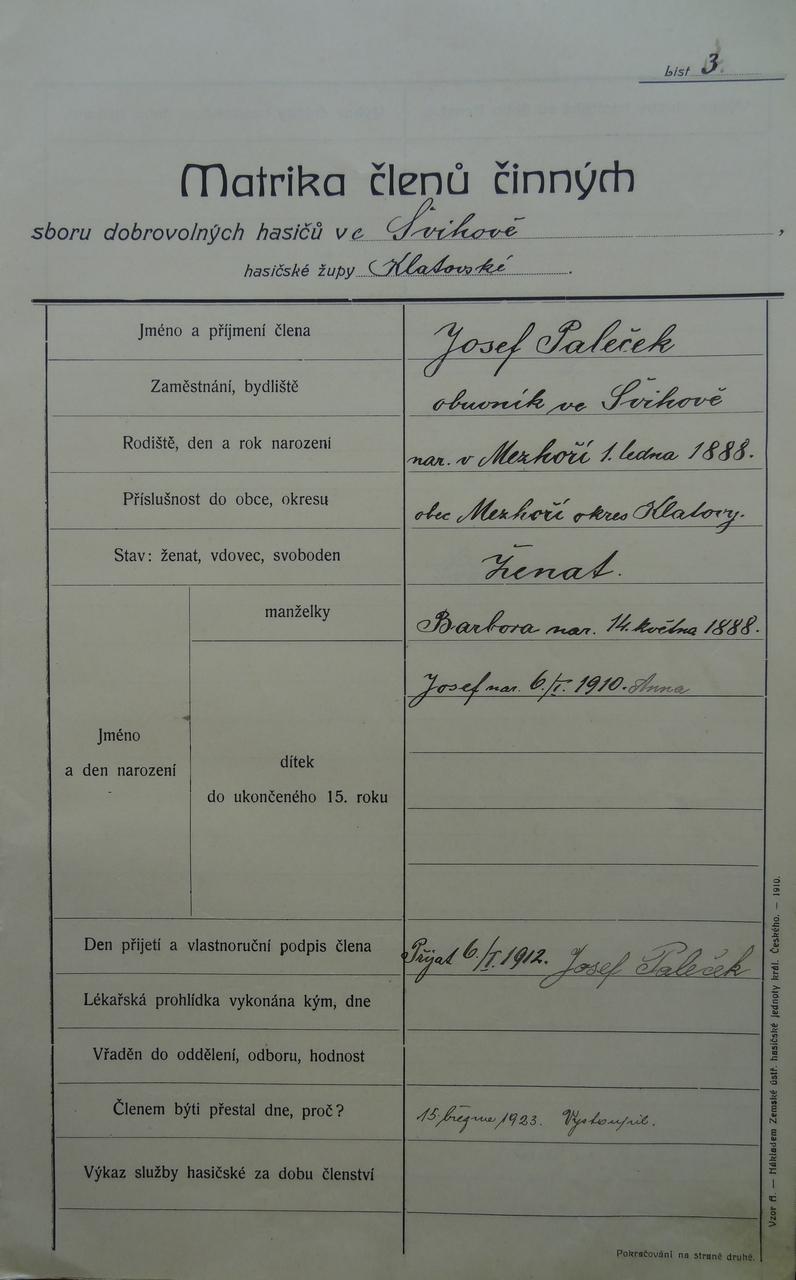 List 3.
Matrika členů činných
sboru dobrovolných hasičů ve Švihově,
hasičské župy Klatovské.
Jméno a příjmení člena Josef Paleček
Zaměstnání, bydliště obuvník ve Švihově
Rodiště, den a rok narození nar. v Mezhoří 1. ledna 1888.
Příslušnost do obce, okresu obec Mezhoří okres Klatovy.
Stav: ženat, vdovec, svoboden Ženat.
manželky Barbora nar. 14. května 1888.
Josef nar. 6./I. 1910. Anna
Jméno
a den narození
dítek
do ukončeného 15. roku
Den přijetí a vlastnoruční podpis člena Přijat 6./I. 1912. Josef Paleček
Lékařská prohlídka vykonána kým, dne
Vřaděn do oddělení, odboru, hodnost
Členem býti přestal dne, proč? 15. března 1923. Vystoupil.
Výkaz služby hasičské za dobu členství
Pokračování na straně druhé.
Vzor A. — Nákladem Zemské ústř. hasičské jednoty král. Českého. — 1910.